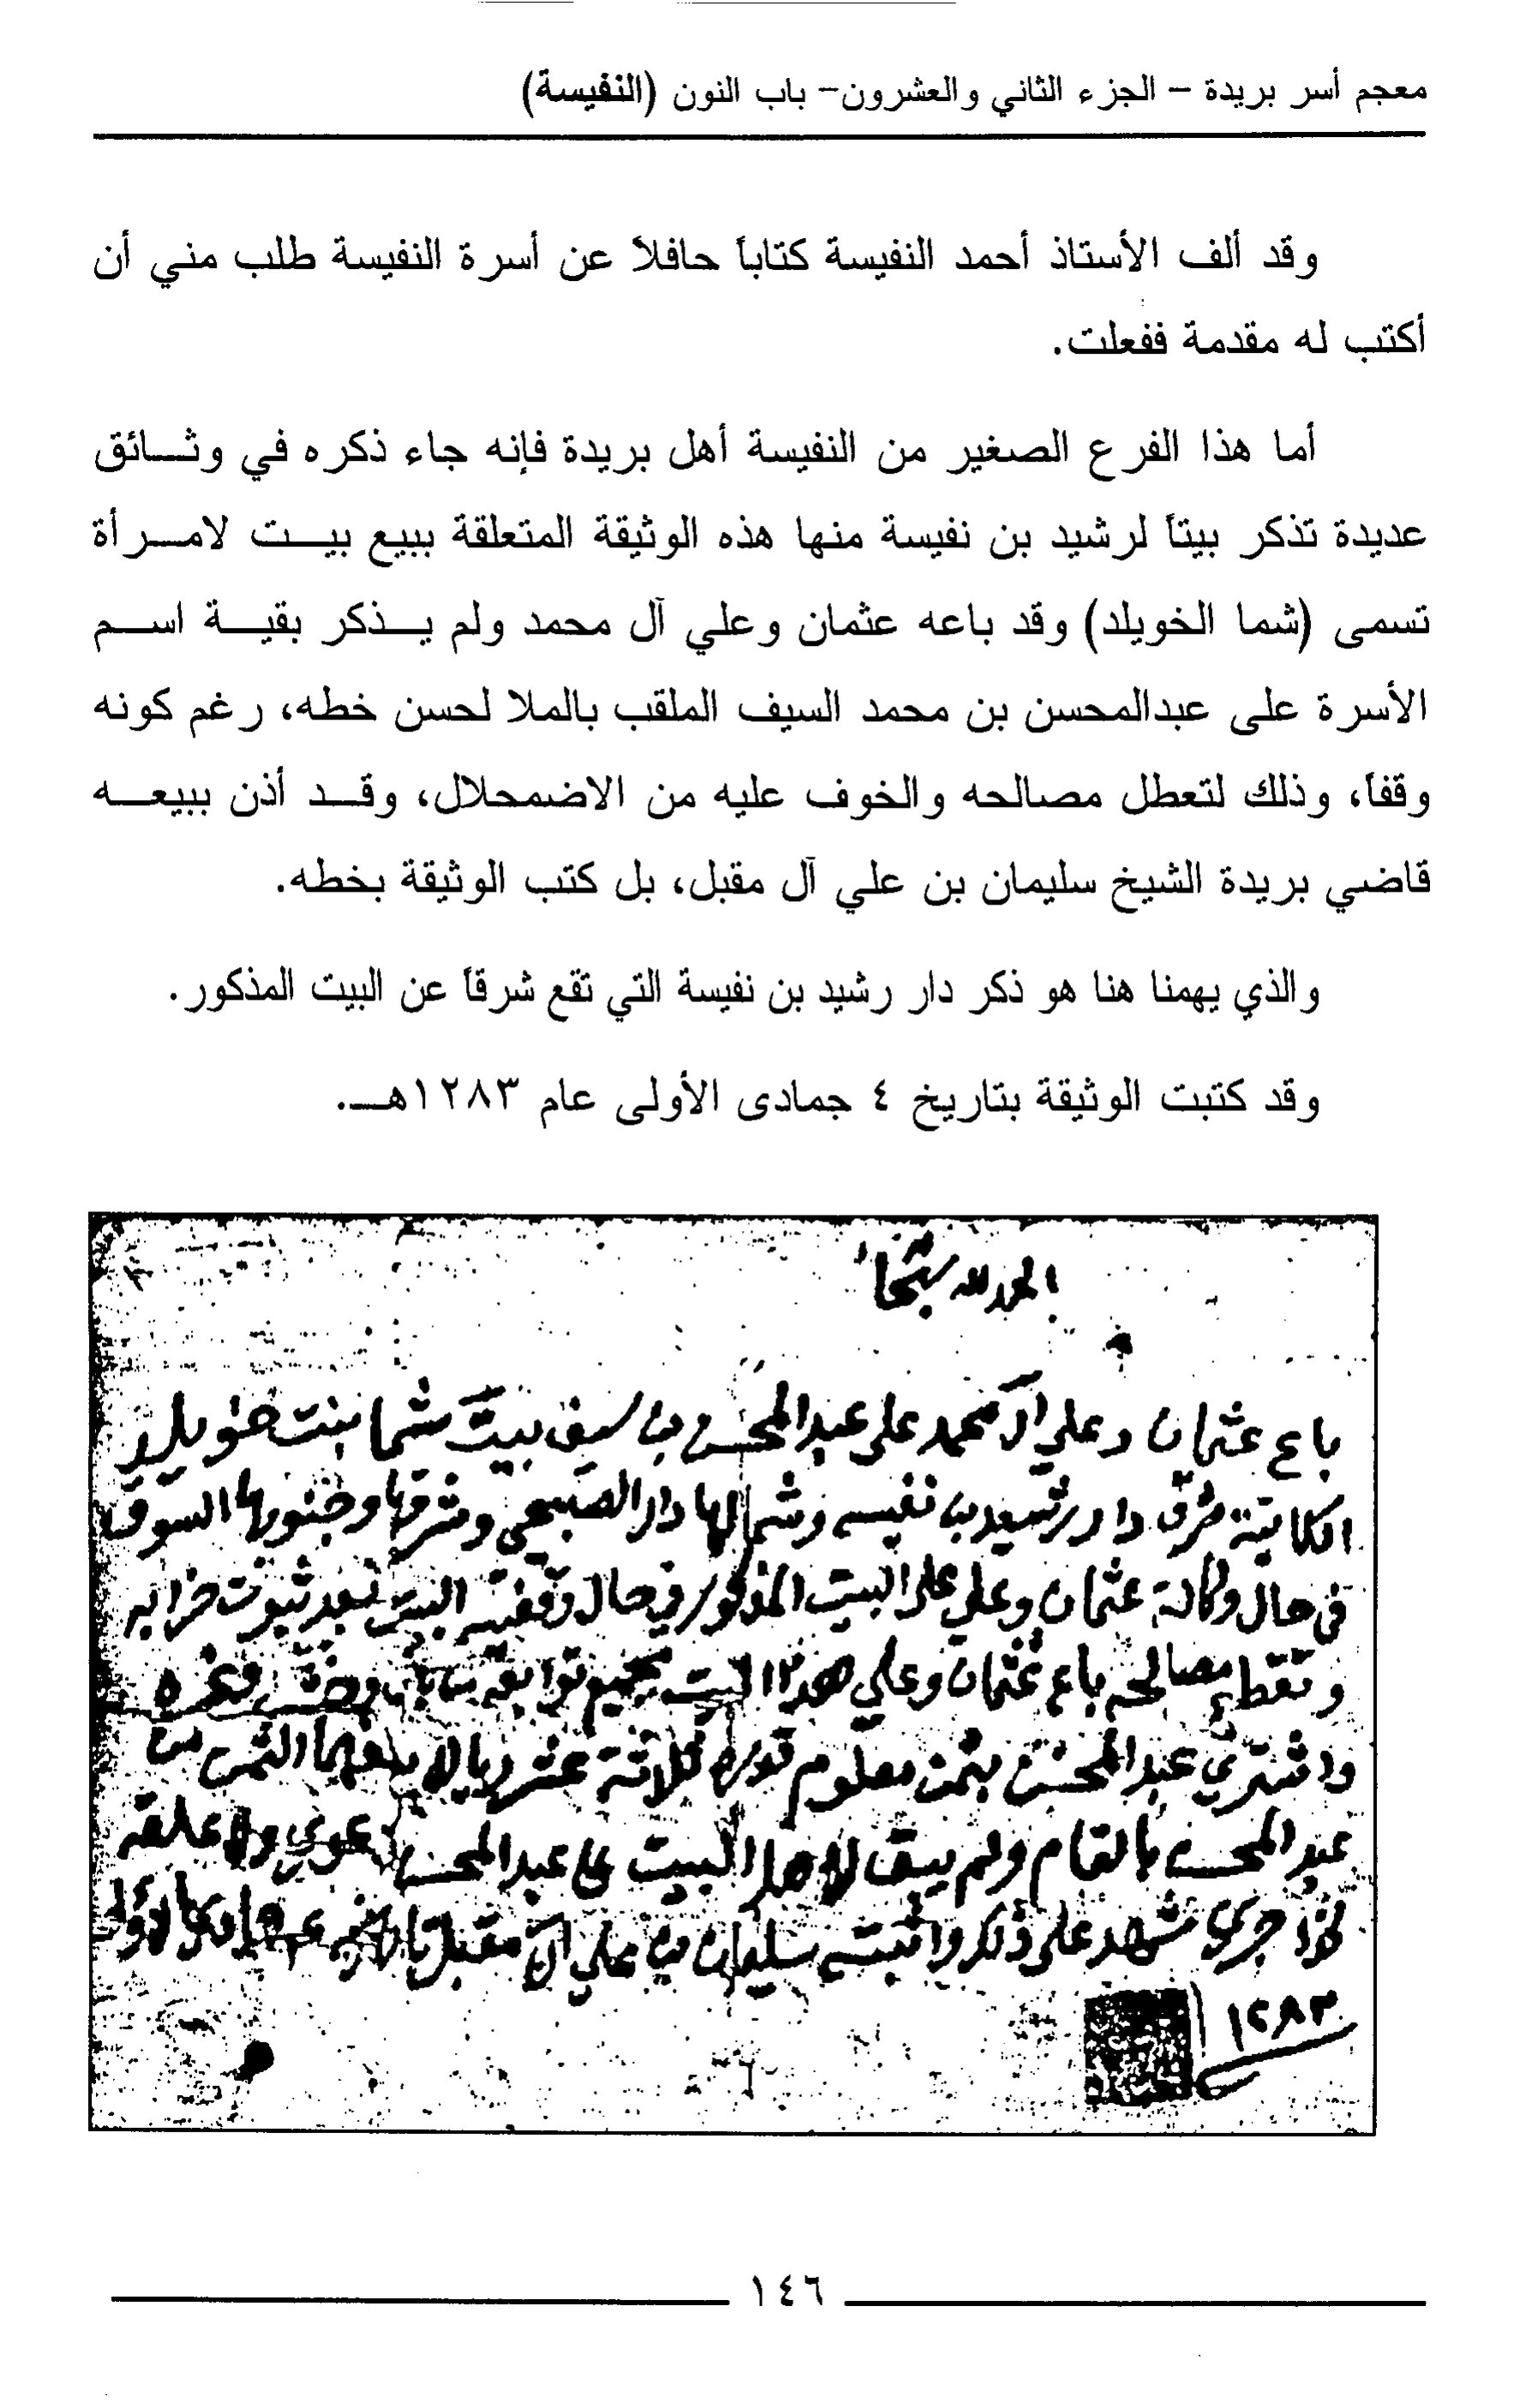 معجم أسر بريدة – الجزء الثاني والعشرون– باب النون (النفيسة)
وقد ألف الأستاذ أحمد النفيسة كتاباً حافلاً عن أسرة النفيسة طلب مني أن
أكتب له مقدمة ففعلت.
أما هذا الفرع الصغير من النفيسة أهل بريدة فإنه جاء ذكره في وثـــائق
عديدة تذكر بيتاً لرشيد بن نفيسة منها هذه الوثيقة المتعلقة ببيع بيـــت لامـــرأة
تسمى (شما الخويلد) وقد باعه عثمان وعلي آل محمد ولم يـــذكر بقيـــة اســـم
الأسرة على عبدالمحسن بن محمد السيف الملقب بالملا لحسن خطه، رغم كونه
وقفاً، وذلك لتعطل مصالحه والخوف عليه من الاضمحلال، وقـــد أذن ببيعـــه
قاضي بريدة الشيخ سليمان بن علي آل مقبل، بل كتب الوثيقة بخطه.
والذي يهمنا هنا هو ذكر دار رشيد بن نفيسة التي تقع شرقاً عن البيت المذكور.
وقد كتبت الوثيقة بتاريخ ٤ جمادى الأولى عام ١٢٨٣هـــ.
الحمد لله سبحانه
باع عثمان وعلي آل محمد على عبدالمحسن بن سيف بيت شما بنت خويلد
الكاينة شرق دار رشيد بن نفيسه وشمالها دار الصبيحي وشرقها وجنوبها السوق
في حال وكالة عثمان وعلي على البيت المذكور في حال وقفية البيت بعد ثبوت خرابه
وتعطل مصالحه باع عثمان وعلي هذا البيت بجميع توابعه من باب وخشب وغيره
واشترى عبدالمحسن بثمن معلوم قدره ثلاثة عشر ريال بلغهما الثمن من
عبدالمحسن بالتمام ولم يبق لأهل البيت على عبدالمحسن دعوى ولا علقة
جرى شهد على ذلك واثبته سليمان بن علي آل مقبل جماد الأولى
١٢٨٣
١٤٦